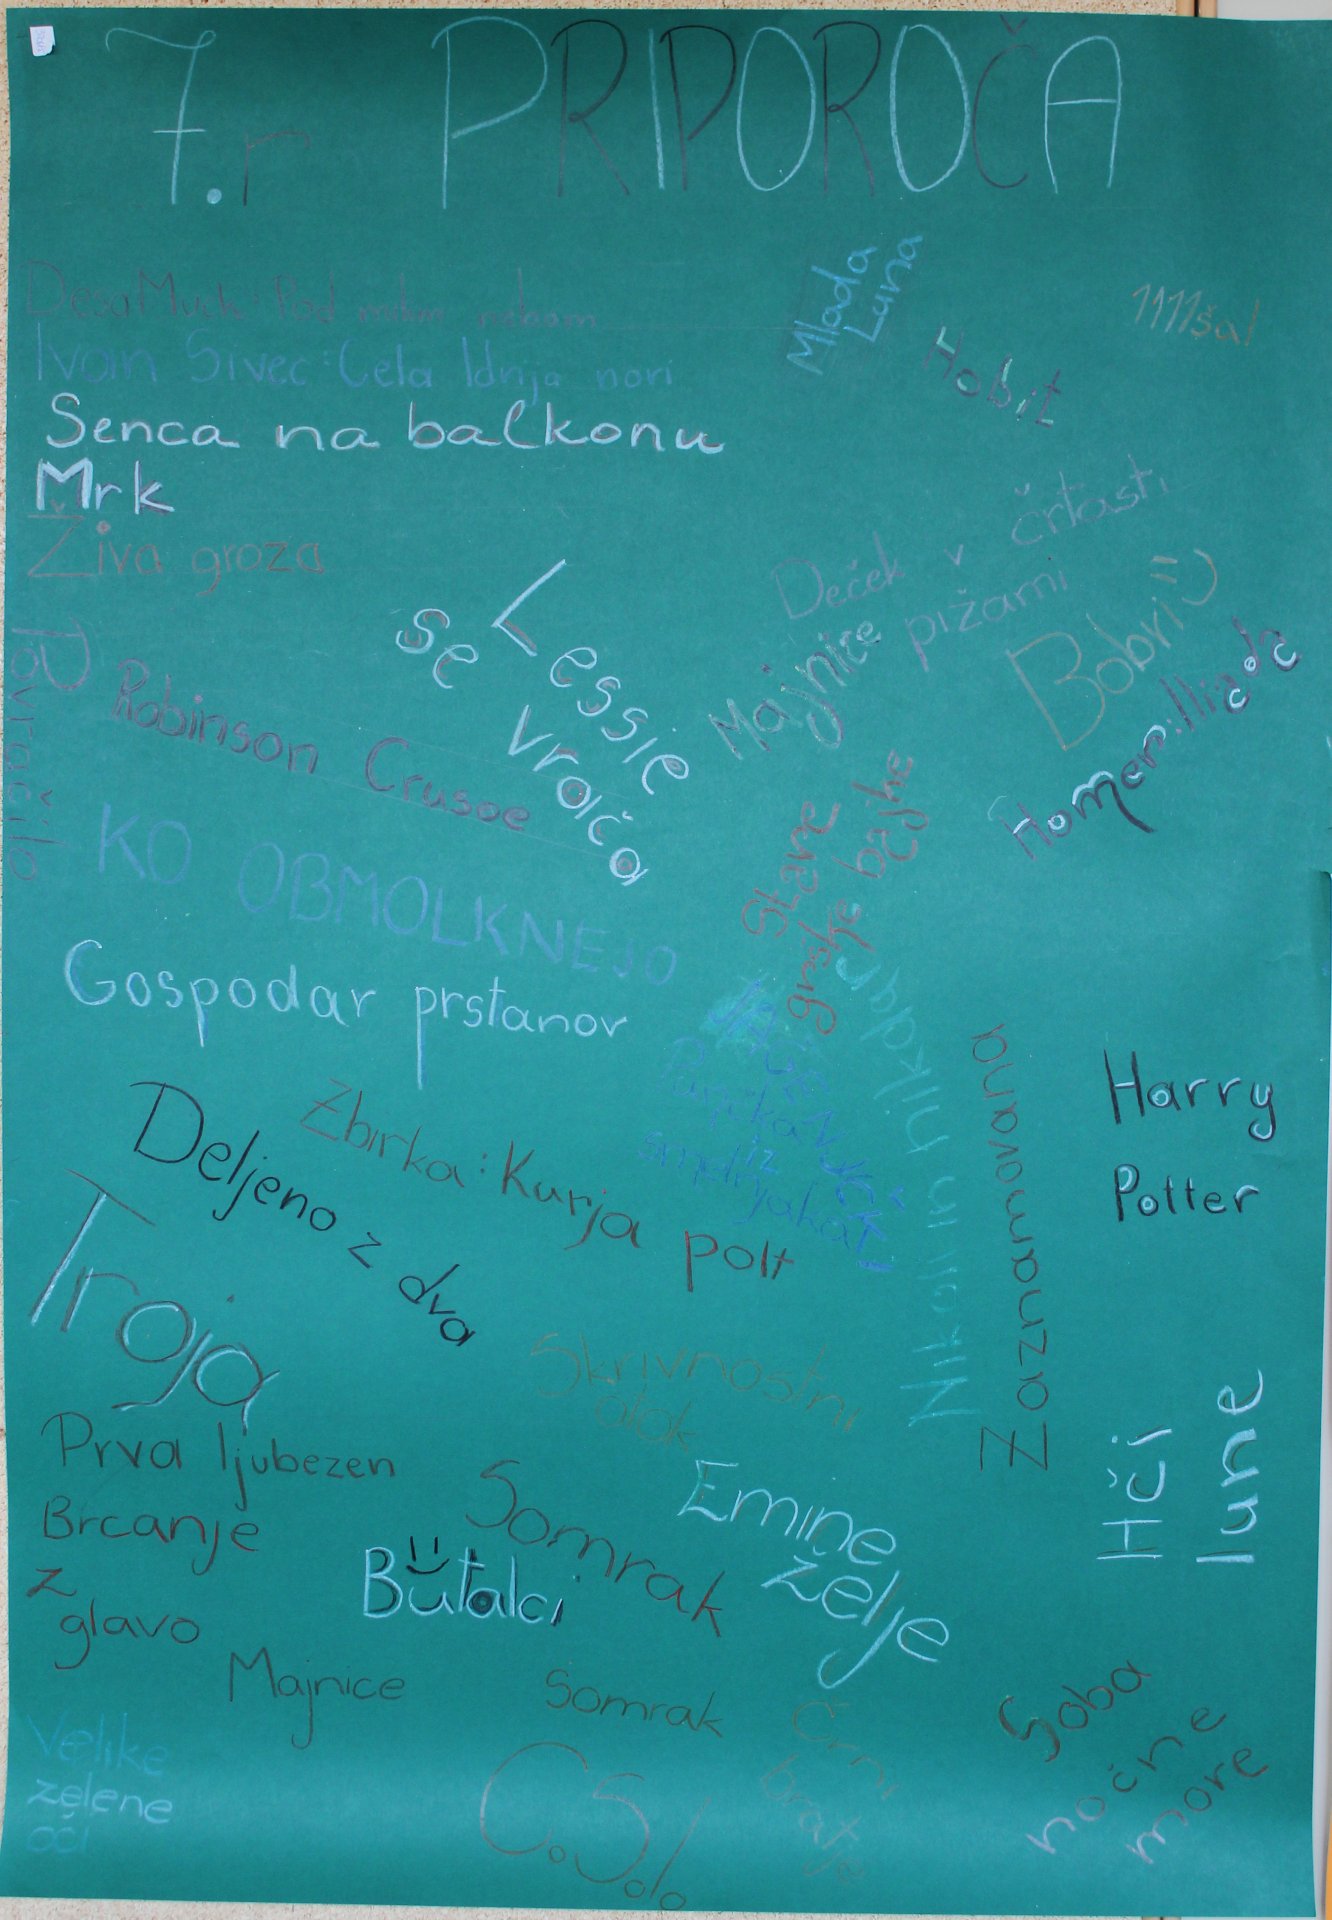 7.r PRIPOROČA
Desa Muck: Pod milim nebom
Ivan Sivec: Cela Idrija nori
Senca na balkonu
Mrk
Živa groza
Mlada
Luna
Hobit
1111šal
Deček v črtasti
pižami
Bobri
Majnice
Homer: Iliada
Lessie
se
vrača
Povračilo
Robinson Crusoe
KO OBMOLKNEJO
Stare
grške bajke
Gospodar prstanov
Nikoli nikdar
Zaznamovana
Harry
Potter
Deljeno z dva
Zbirka: Kurja polt
Troja
Skrivnostni
otok
Hči
lune
Prva ljubezen
Brcanje
z
glavo
Somrak
Butalci
Emine
želje
Majnice
Somrak
Črni
bratje
Soba
nočne
more
Velike
zelene
oči